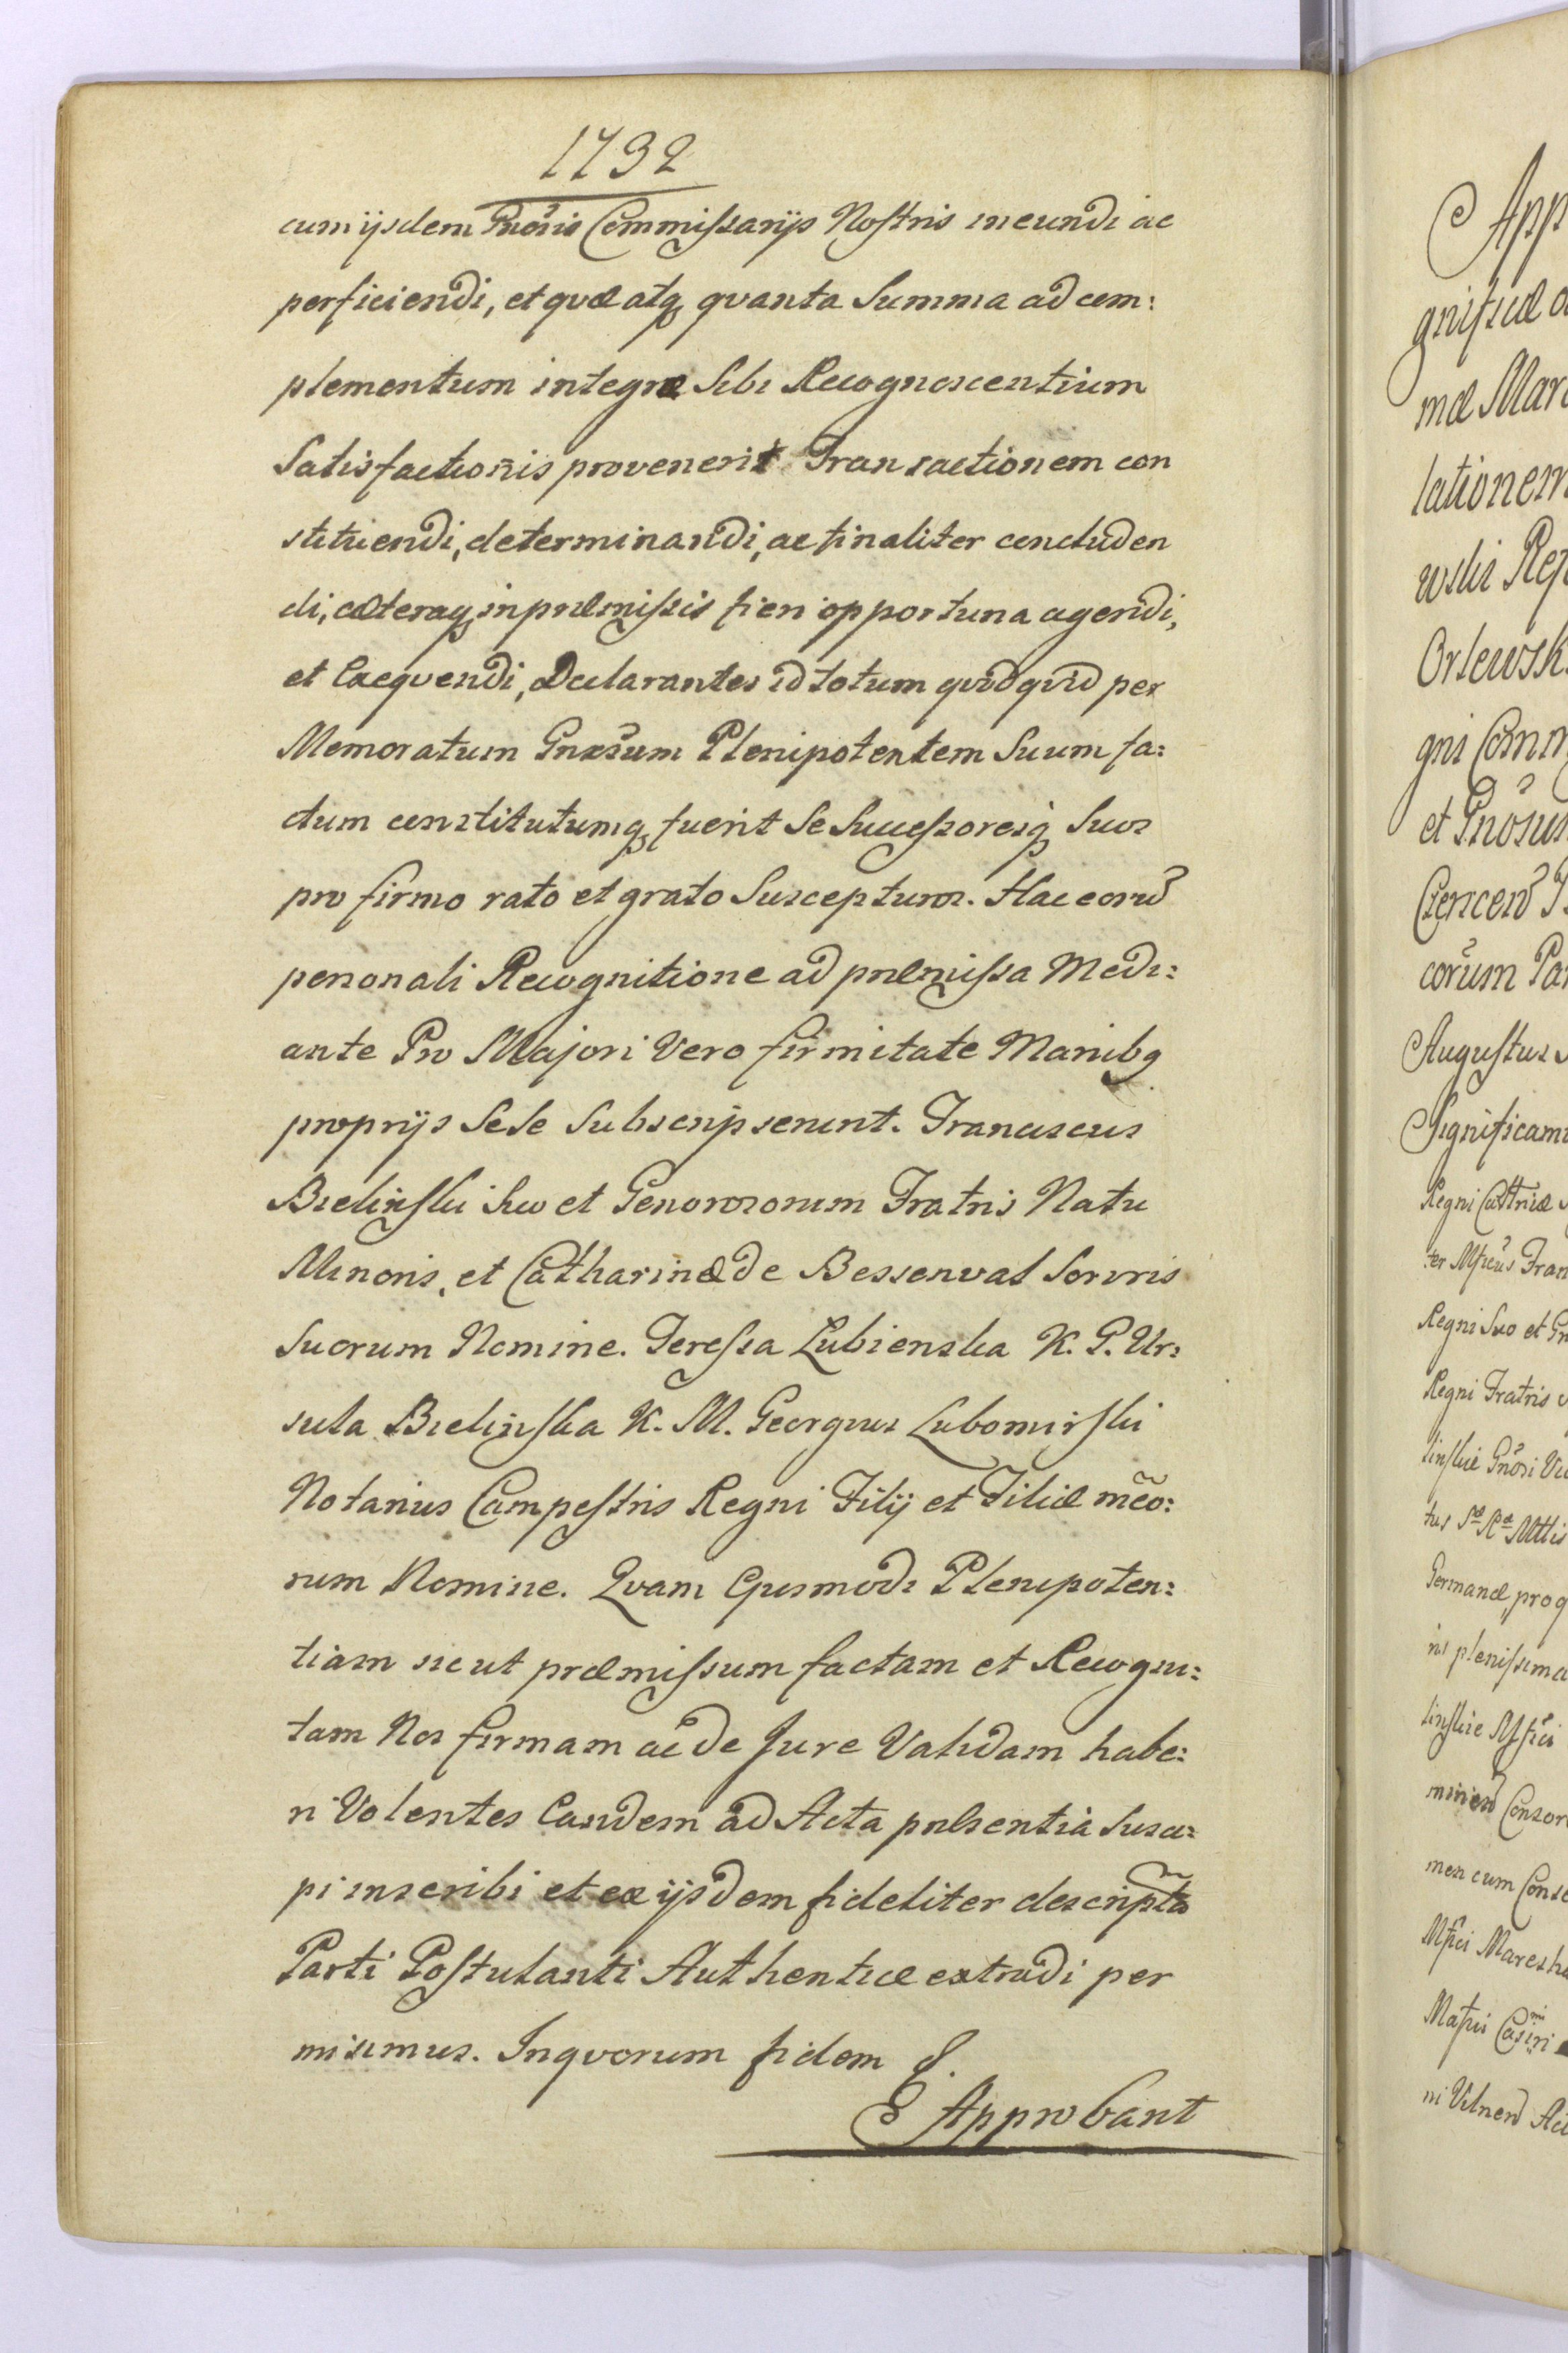 1732
cum ijsdem Gnõsis Commissarijs Nostris ineundi ac
perficiendi, et qvæ atq qvanta Summa ad com:
plementum integræ Sibi Recognoscentium
Satisfactionis provenerit Transactionem con
stituendi, determinandi, ac finaliter concluden
di, cæteraq in præmissis fieri opportuna agendi,
et Exeqvendi, Declarantes id totum qvidqvid per
Memoratum Gnõsum Plenipotentem Suum fa:
ctum constitutumq fuerit Se Successoresq Suos
pro firmo rato et grato Suscepturos. Hac eorũ
personali Recognitione ad præmissa Medi:
ante Pro Majori Vero firmitate Manibq
proprijs Sese Subscripserunt. Franciscus
Bielinski Suo et Generosorum Fratris Natu
Minoris, et Catharinæ de Bessenval Sororis
Suorum Nomine. Teressa Lubienska K. P. Ur:
sula Bielinska K. M. Georgius Lubomirski
Notarius Campestris Regni Filij et Filiæ meõ:
rum Nomine. Qvam Ejusmodi Plenipoten:
tiam sicut præmissum factam et Recogni:
tam Nos firmam ac de Jure Validam habe:
ri Volentes Eandem ad Acta præsentia Susci:
pi inscribi et ex ijsdem fideliter descriptã
Parti Postulanti Authenticæ extradi per
misimus. In qvorum fidem &.
Approbant
App
gnitæ
mæ Mar
lationem
wski Rep
Orlewsk
gni Comm
et Gnõsum
corum Par
Augustus
Significam
Regni Cattriæ
ter Mficus Fran
Regni Suo et Gn
Regni Fratris
linskie Gnõsi
tus Sæ Ræ Mttis
Germanæ, prog
ni plenissima
linskie Mfici
men cum Conse
Mfici Maresha